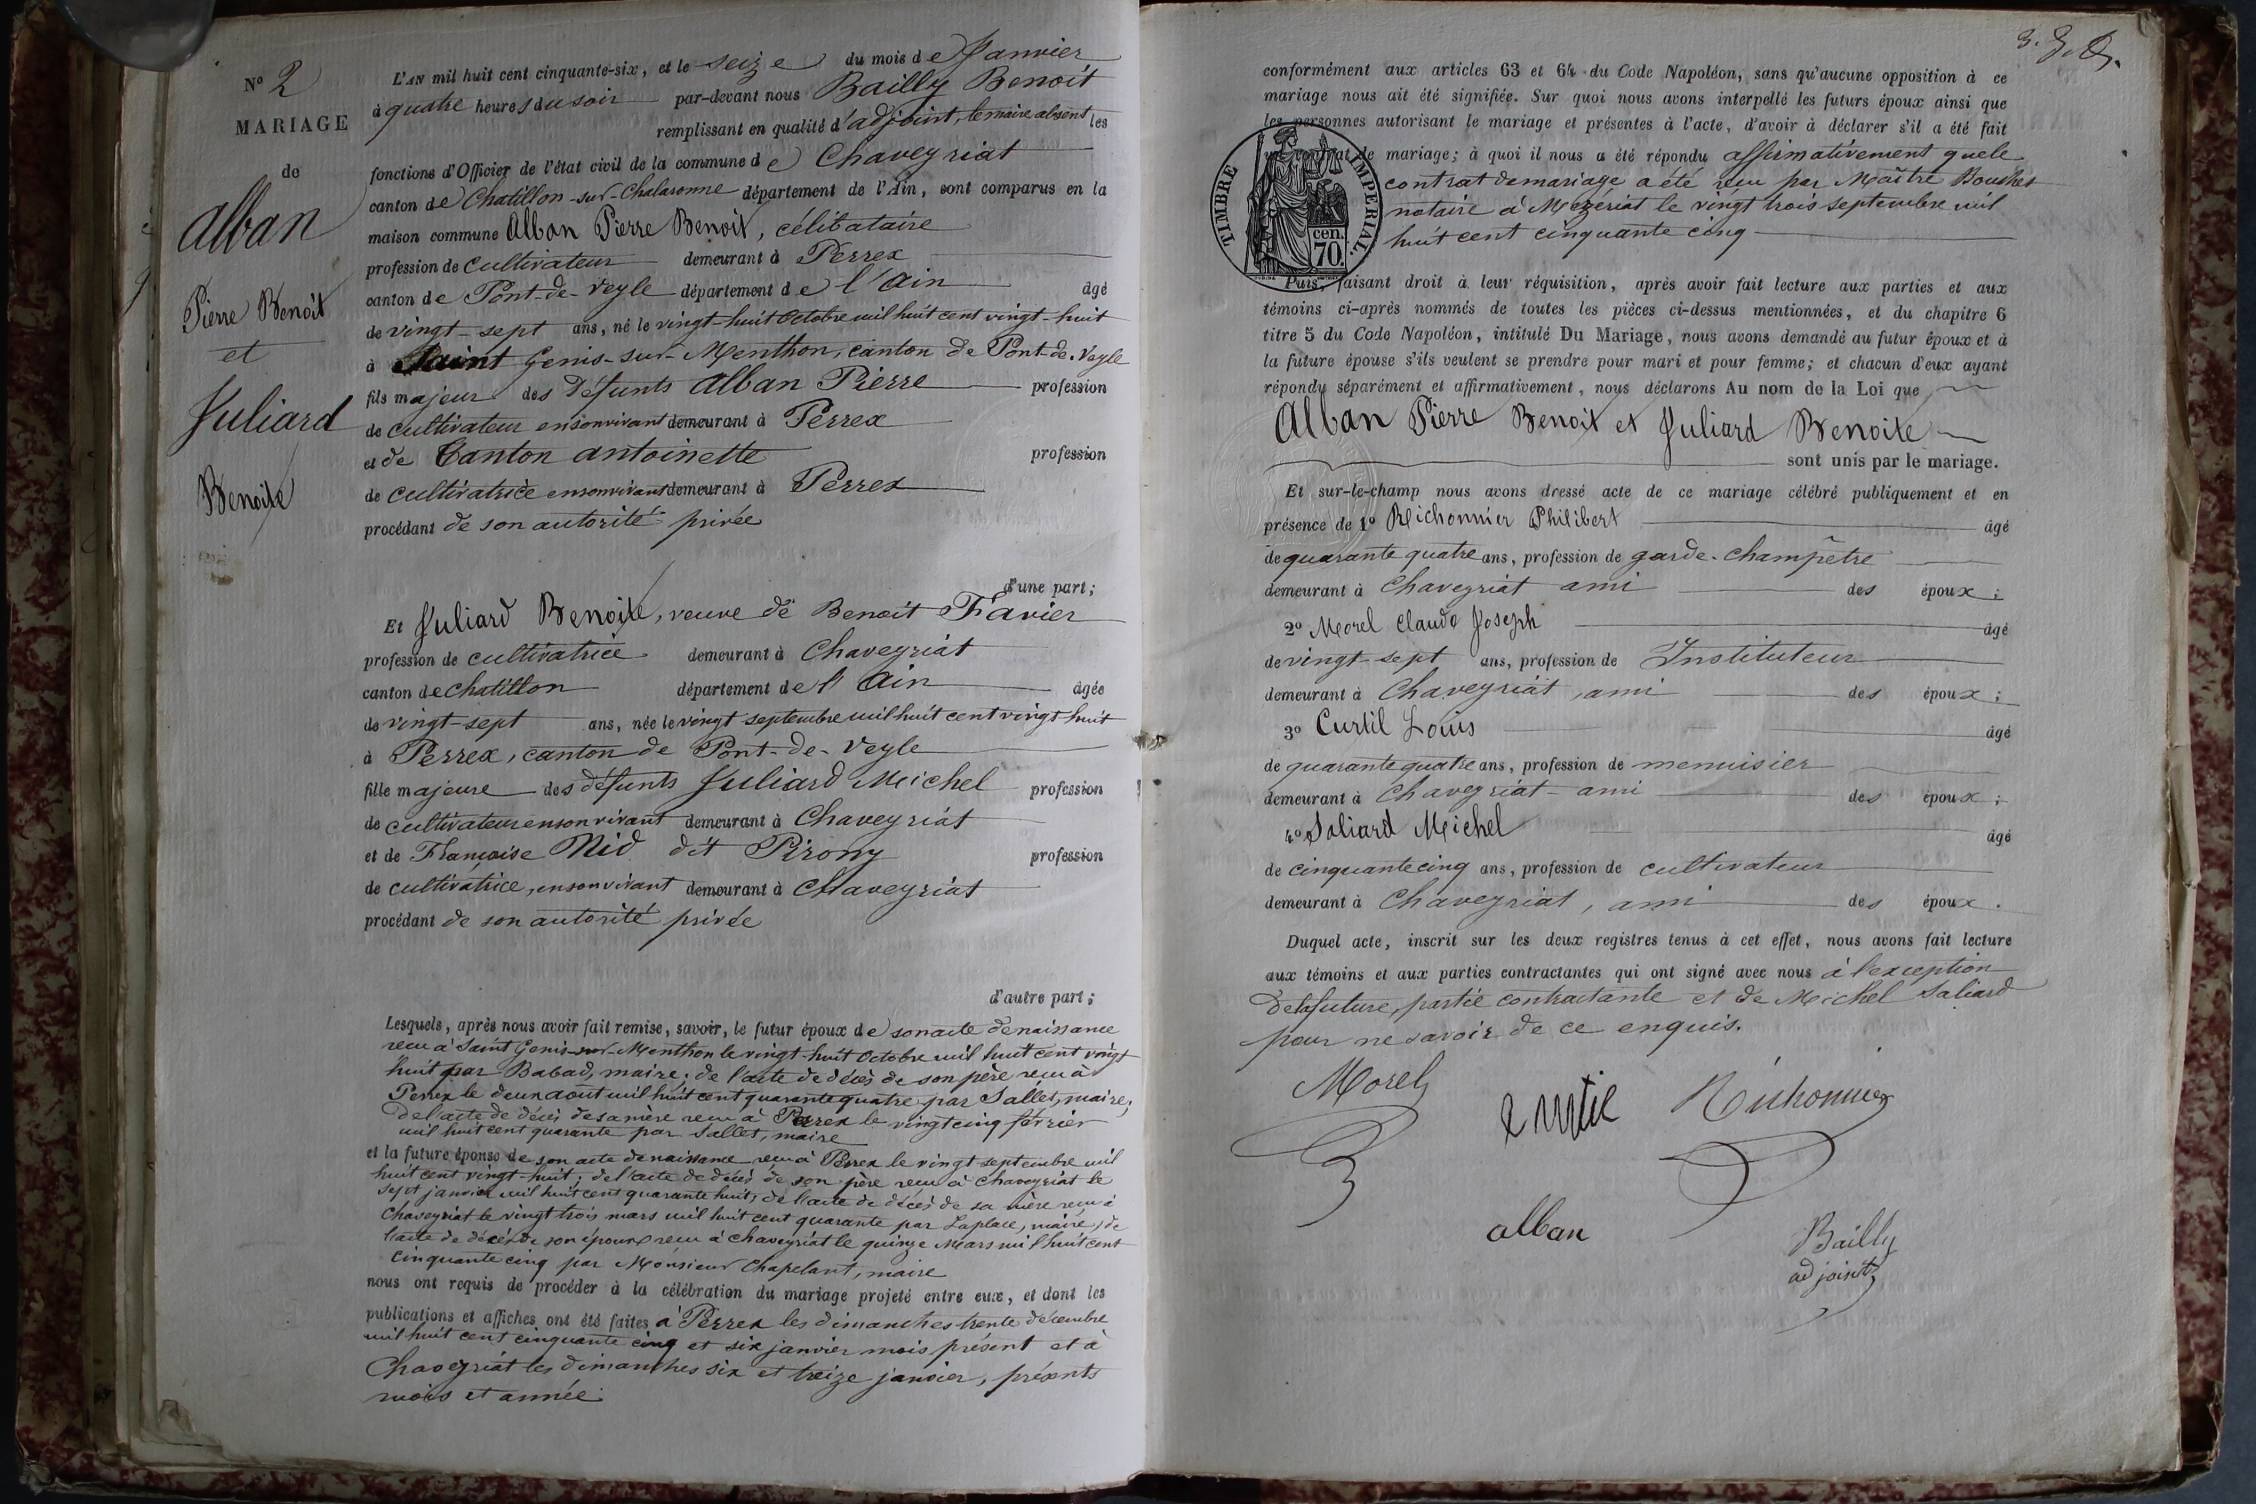 N° 2
MARIAGE
de
Alban
Pierre Benoit
et
Juliard
Benoite
L'AN mil huit cent cinquante-six, et le seize du mois de Janvier
à quatre heures du soir par-devant nous Bailly Benoit
remplissant en qualité d'adjoint, le maire absent les
fonctions d'Officier de l'état civil de la commune de Chaveyriat
canton de Chatillon-sur-Chalaronne département de l'Ain, sont comparus en la
maison commune Alban Pierre Benoit, célibataire
profession de cultivateur demeurant à Perrex
canton de Pont-de-Veyle département de l'Ain âgé
de vingt-sept ans, né le vingt-huit Octobre mil huit cent vingt-huit
à Saint Genis-sur-Menthon, canton de Pont-de-Veyle
fils majeur des défunts Alban Pierre profession
de cultivateur en son vivant demeurant à Perrex
et de Canton antoinette profession
de cultivatrice en son vivant demeurant à Perrex
procédant de son autorité privée
d'une part;
Et Juliard Benoite, veuve de Benoit Favier
profession de cultivatrice demeurant à Chaveyriat
canton de chatillon département de l'Ain âgée
de vingt-sept ans, née le vingt septembre mil huit cent vingt huit
à Perrex, canton de Pont-de-Veyle
fille majeure des défunts Juliard Michel profession
de cultivateur en son vivant demeurant à Chaveyriat
et de Françoise Nid dit Pirony profession
de cultivatrice, en son vivant demeurant à Chaveyriat
procédant de son autorité privée
d'autre part;
Lesquels, après nous avoir fait remise, savoir, le futur époux de son acte de naissance
reçu à Saint Genis-sur-Menthon le vingt-huit Octobre mil huit cent vingt
huit par Babad, maire; de l'acte de décès de son père reçu à
Perrex le deux août mil huit cent quarante quatre par Sallet, maire;
de l'acte de décès de sa mère reçu à Perrex le vingt cinq février
mil huit cent quarante par Sallet, maire
et la future épouse de son acte de naissance reçu à Perrex le vingt septembre mil
huit cent vingt-huit; de l'acte de décès de son père reçu à Chaveyriat le
sept janvier mil huit cent quarante huit, de l'acte de décès de sa mère reçu à
Chaveyriat le vingt trois mars mil huit cent quarante par Laplace, maire, de
l'acte de décès de son époux reçu à Chaveyriat le quinze Mars mil huit cent
cinquante cinq par Monsieur Chapelant, maire
nous ont requis de procéder à la célébration du mariage projeté entre eux, et dont les
publications et affiches ont été faites à Perrex les dimanches trente décembre
mil huit cent cinquante cinq et six janvier mois présent et à
Chaveyriat les dimanches six et treize janvier, présents
mois et année.
conformément aux articles 63 et 64 du Code Napoléon, sans qu'aucune opposition à ce
mariage nous ait été signifiée. Sur quoi nous avons interpellé les futurs époux ainsi que
les personnes autorisant le mariage et présentes à l'acte, d'avoir à déclarer s'il a été fait
un contrat de mariage; à quoi il nous a été répondu affirmativement que le
contrat de mariage a été reçu par Maître Bouchet
notaire à Mézériat le vingt trois septembre mil
huit cent cinquante cinq
TIMBRE IMPERIAL.
cen.
70.
Puis, faisant droit à leur réquisition, après avoir fait lecture aux parties et aux
témoins ci-après nommés de toutes les pièces ci-dessus mentionnées, et du chapitre 6
titre 5 du Code Napoléon, intitulé Du Mariage, nous avons demandé au futur époux et à
la future épouse s'ils veulent se prendre pour mari et pour femme; et chacun d'eux ayant
répondu séparément et affirmativement, nous déclarons Au nom de la Loi que
Alban Pierre Benoit et Juliard Benoite
sont unis par le mariage.
Et sur-le-champ nous avons dressé acte de ce mariage célébré publiquement et en
présence de 1° Richonnier Philibert âgé
de quarante quatre ans, profession de garde-champêtre
demeurant à Chaveyriat ami des époux;
2° Morel Claude Joseph âgé
de vingt-sept ans, profession de Instituteur
demeurant à Chaveyriat, ami des époux;
3° Curtil Louis âgé
de quarante quatre ans, profession de menuisier
demeurant à Chaveyriat ami des époux;
4° Saliard Michel âgé
de cinquante cinq ans, profession de cultivateur
demeurant à Chaveyriat, ami des époux.
Duquel acte, inscrit sur les deux registres tenus à cet effet, nous avons fait lecture
aux témoins et aux parties contractantes qui ont signé avec nous à l'exception
de la future, partie contractante et de Michel Saliard
pour ne savoir de ce enquis.
Morel
Richonnier
alban
Bailly
adjoint